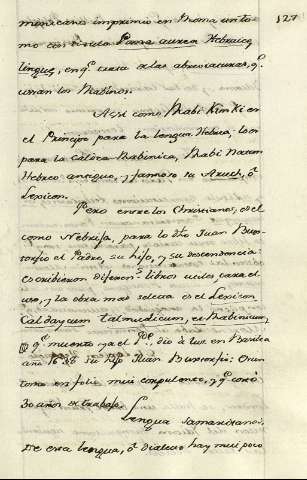 127
mexicano imprimio en Roma un to-
mo con titulo Parva aurea Hebraicę
linguę, en q.e trata de las abreviaturas, q.e
usan los Rabinos.
Asi como Rabi Kimki es
el Principe para la lengua Hebrea; lo es
para la Caldea Rabinica, Rabi Natan
Hebreo antiguo, y famoso su Aruch, ô
Lexicon.
Pero entre los Christianos, es el
como Nebrija, para lo dho Juan Bux-
torfio el Padre, su hijo, y su descendencia
escribieron diferen.s libros utiles para el
uso, y la obra mas selecta es el Lexicon
Caldaycum talmudicum, et Rabinicum,
q.e muerto ya el P.e dio à luz en Basilea
año 1639 su hijo Juan Buxtorfio: Òun
tomo en folio mui corpulento, y q.e costó
30 años de trabajo.
Lengua Samaritana.
De esta lengua, ô dialecto hay mui poco